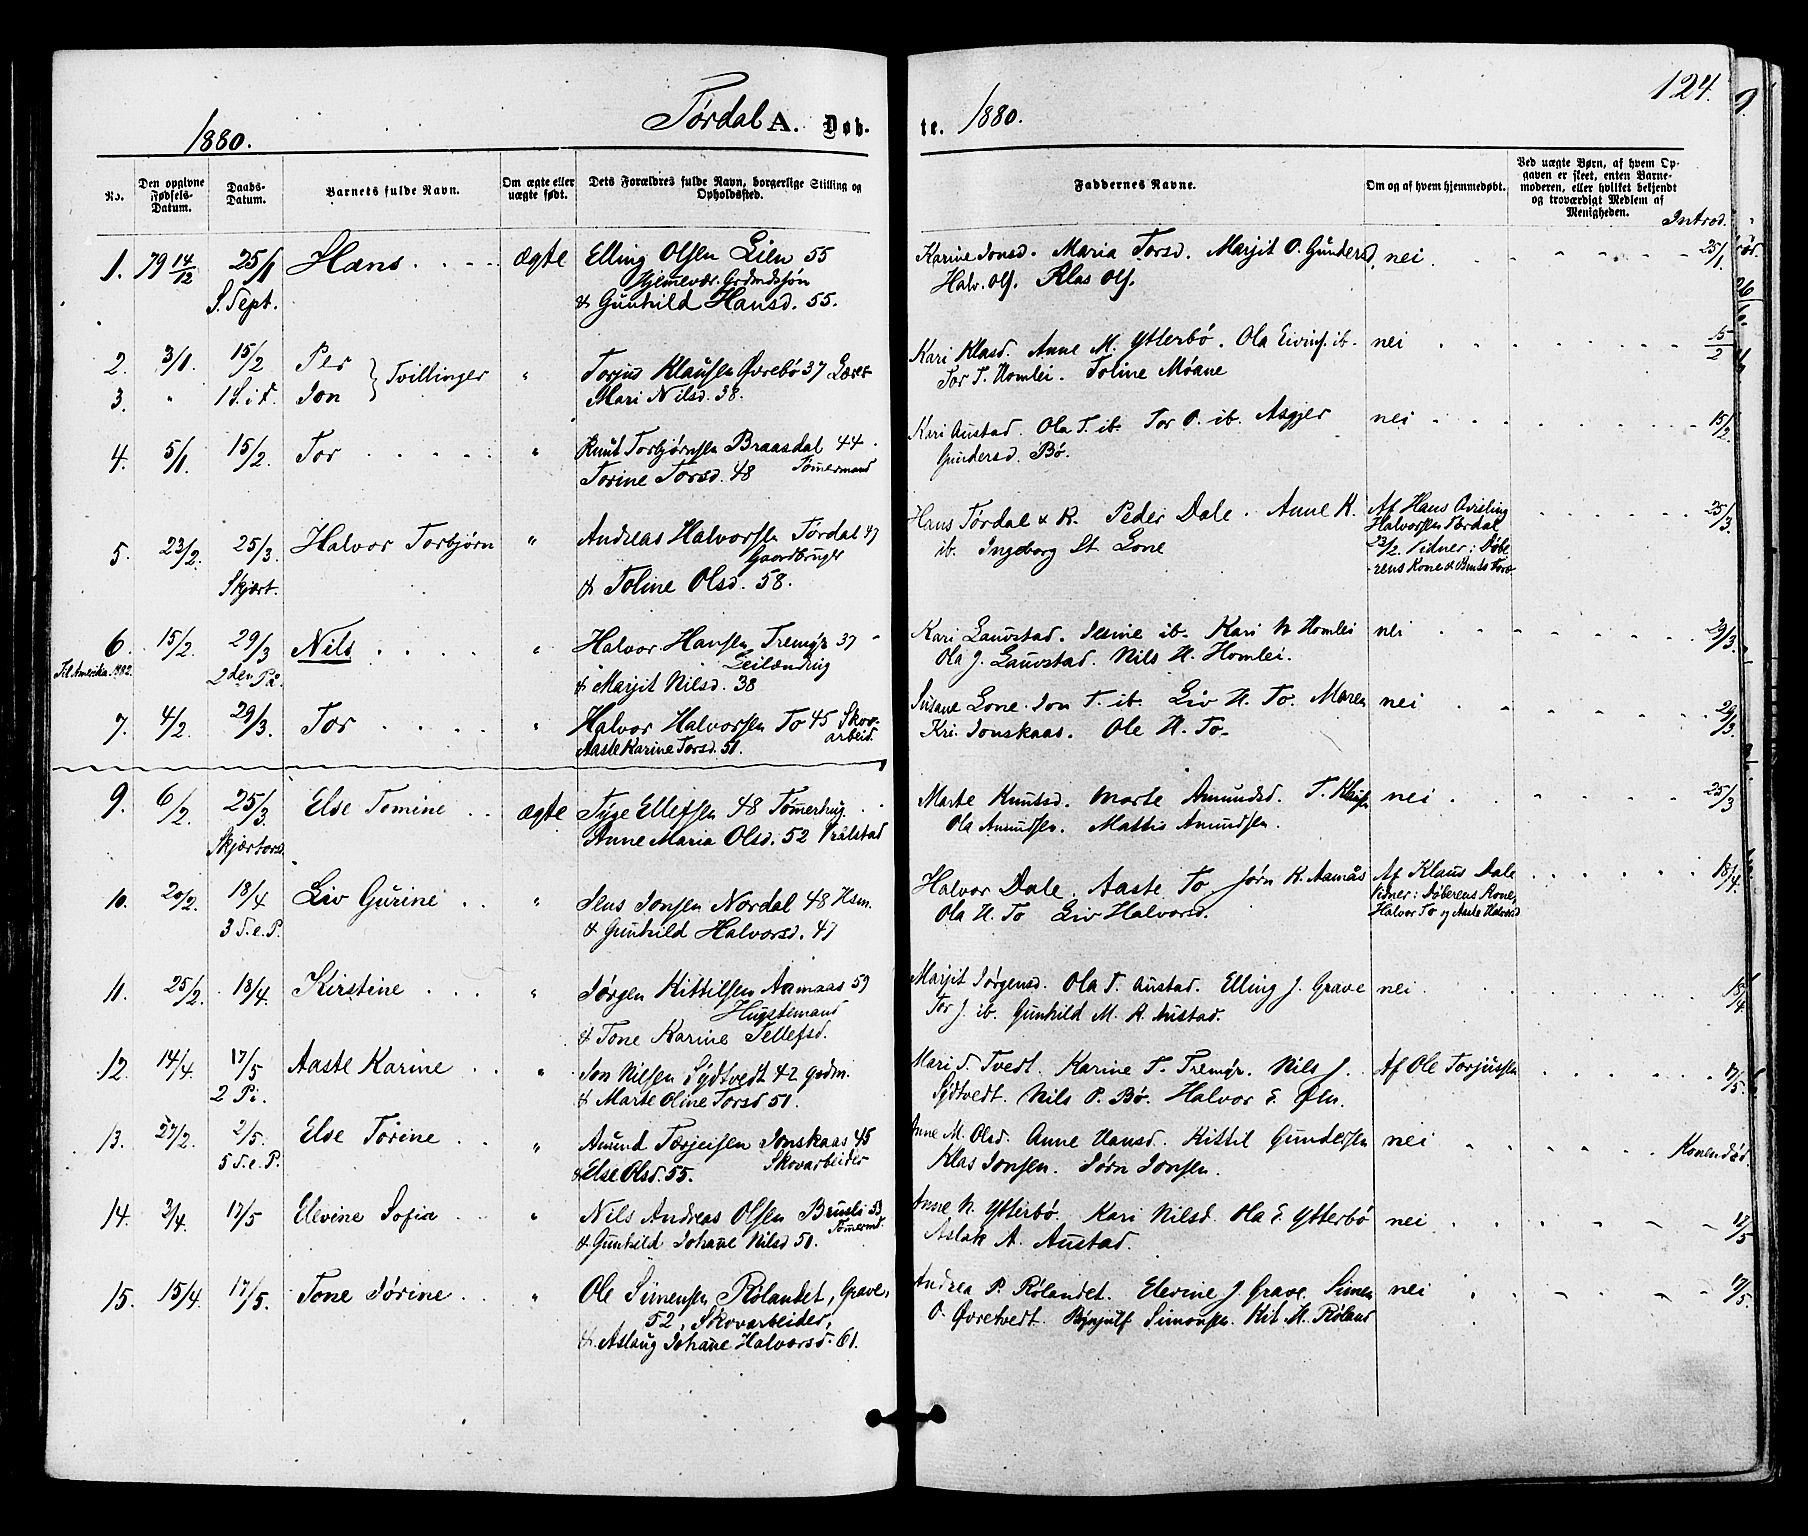 1880. Tørdal A. Døb-
te. 1880. 124.
No.
Den opgivne Fødsels-Datum.
Daabs-Datum.
Barnets fulde Navn.
Om ægte eller uægte født.
Dets Forældres fulde Navn, borgerlige Stilling og Opholdssted.
Faddernes Navne.
Om og af hvem hjemmedøbt.
Ved uægte Børn, af hvem Opgaven er skeet, enten Barnemoderen, eller hvilket bekjendt og troværdigt Medlem af Menigheden.
Introd.
1. 79 14/12 25/1 Hans. ægte Elling Olsen Lien 55
S. Sept. & Gunhild Hansd. 55.
Karine Jonsd. Maria Torsd. Marjit O. Gundersd. nei 25/1.
Halv. Ols. Klas Ols.
2. 3/1 15/2 Per } Tvillinger " Torjus Klausen Øvrebø 37 Lærer
3. " 1 S. i F. Jon Mari Nilsd. 38.
Kari Klasd. Anne M. Ytterbø. Ola Eivins. ib. nei 15/2
Tor T. Homlei. Toline Moane
4. 5/1 15/2. Tor " Knut Torbjørnsen Braasdal 44
Torine Torsd. 48 Tømermand
Kari Austad. Ola T. ib. Tor O. ib. Asgjer nei 15/2
Gundersd. Bø.
5. 23/2. 25/3. Halvor Torbjørn " Andreas Halvorsen Tørdal 47
Gaardbruger
Skjært. & Toline Olsd. 58.
Hans Tørdal & K. Peder Dale. Anne K. Af Hans Qvisling 25/3
ib. Ingeborg St. Lone Halvorsen Tørdal
23/2. Vidner: Døbe-
rens Kone &
6. 15/2. 29/3 Nils " Halvor Hansen Tremyr 37
Til Amerika 1882. 2den På. Leilænding
& Marjit Nilsd. 38
Kari Lauvstad. ib. Kari N Homlei nei 29/3.
Ola J. Lauvstad. Nils H. Homlei.
7. 4/2 29/3. Tor " Halvor Halvorsen To 45 Skov-
arbeid.
Aaste Karine Torsd. 51.
Susane Lone. Jon T. ib. Liv H. To. Maren nei 29/3.
Kri. Jonskaas. Ole H. To.
9. 6/2 25/3 Else Tomine ægte Tyge Ellefsen 48 Tømerhug.
Skjærtorsd. Anne Maria Olsd. 52 Vrålstad
Marte Knutsd. Marte Amundsd. T. Klausen nei 25/3
Ola Amundsen. Mattis Amundsen.
10. 20/2. 18/4 Liv Gurine " Jens Jonsen Nordal 48 Hsm.
3 S. e. P. & Gunhild Halvorsd. 47
Halvor Dale. Aaste To Jørn K. Aamås Af Klaus Dale 18/4.
Ola H. To Liv Halvorsd. Vidner: Døberens Kone,
Halvor To og Aaste Halvorsd
11. 25/2. 18/4. Kirstine " Jørgen Kittilsen Aamaas 59
Hugstemand
& Tone Karine Tellefsd.
Marjit Jørgensd. Ola T. Austad. Elling J. Grave nei 18/4
Tor J. ib. Gunhild M. A. Austad.
12. 14/4. 17/5 Aaste Karine " Jon Nilsen Sydtvedt 42 gdm.
2 Pi. & Marte Oline Torsd 51.
Mari S. Tvedt. Karine T. Tremyr. Nils J. Af Ole Torjussen 17/5.
Sydtvedt. Nils P. Bø. Halvor E.
13. 27/2. 2/5. Else Torine " Amund Tarjeisen Jonskaas 45
Skovarbeider
5 S. e. P. & Else Olsd. 55.
Anne M. Olsd. Anne Hansd. Kittil Gundersen nei Konen død.
Klas Jonsen. Jørn Jonsen.
14. 3/4. 17/5 Elevine Sofia " Nils Andreas Olsen Brusli 53
Tømermd.
& Gunhild Johane Nilsd 50.
Anne N. Ytterbø. Kari Nilsd. Ola E. Ytterbø nei 17/5
Aslak A. Austad.
15. 15/4. 17/5. Tone Jørine " Ole Simensen Rølandet, Grave,
52, Skovarbeider,
& Aslaug Johane Halvorsd. 61.
Andrea P. Rølandet. Elevine J Grave. Simen nei 17/5.
O. Øvretvedt. Bynjulf Simonsen. Kit M. Røland